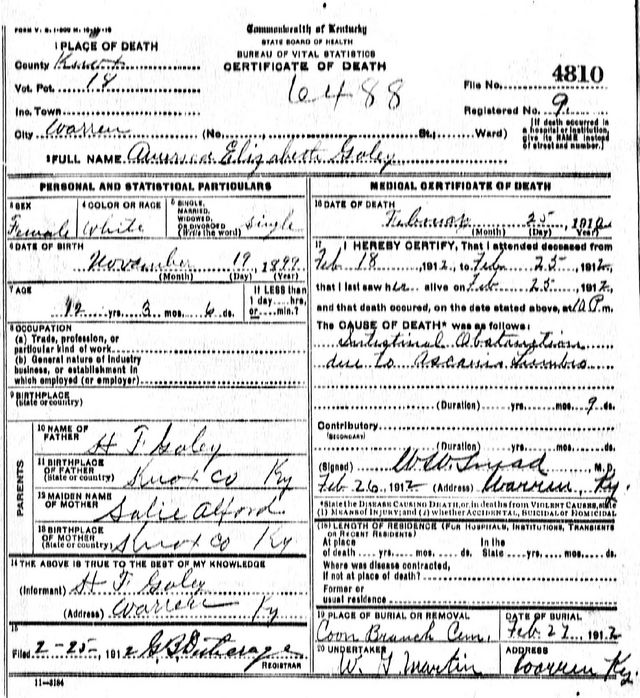 Commonwealth of Kentucky
STATE BOARD OF HEALTH
BUREAU OF VITAL STATISTICS
CERTIFICATE OF DEATH
1 PLACE OF DEATH
County Knox
Vot. Pct. 18
Inc. Town
City Warren (No. St.; Ward)
6488
File No. 4810
Registered No. 9
[If death occurred in a hospital or institution, give its NAME instead of street and number.]
2 FULL NAME Elizabeth Goley
PERSONAL AND STATISTICAL PARTICULARS
3 SEX Female
4 COLOR OR RACE White
5 SINGLE, MARRIED, WIDOWED, OR DIVORCED (Write the word) Single
6 DATE OF BIRTH
November 19, 1899
(Month) (Day) (Year)
7 AGE
12 yrs. 3 mos. 6 ds.
If LESS than 1 day....hrs. or....min.?
8 OCCUPATION
(a) Trade, profession, or particular kind of work
(b) General nature of industry business, or establishment in which employed (or employer)
9 BIRTHPLACE
(State or country)
PARENTS
10 NAME OF FATHER
H F Goley
11 BIRTHPLACE OF FATHER (State or country)
Knox Co Ky
12 MAIDEN NAME OF MOTHER
Salie Alford
13 BIRTHPLACE OF MOTHER (State or country)
Knox Co Ky
14 THE ABOVE IS TRUE TO THE BEST OF MY KNOWLEDGE
(Informant) H F Goley
(Address) Warren Ky
15
Filed 2-25-, 1912
REGISTRAR
11-3184
MEDICAL CERTIFICATE OF DEATH
16 DATE OF DEATH
February 25, 1912
(Month) (Day) (Year)
17 I HEREBY CERTIFY, That I attended deceased from
Feb 18, 1912, to Feb 25, 1912,
that I last saw her alive on Feb 25, 1912,
and that death occured, on the date stated above, at 10 P.m.
The CAUSE OF DEATH* was as follows:
Intestinal Obstanction
due to Ascaris
(Duration) yrs. mos. 9 ds.
Contributory
(SECONDARY)
(Duration) yrs. mos. ds.
(Signed) M.D.
Feb. 26, 1912 (Address) Warren, Ky.
*State the DISEASE CAUSING DEATH, or, in deaths from VIOLENT CAUSES, state
(1) MEANS OF INJURY; and (2) whether ACCIDENTAL, SUICIDAL or HOMICIDAL
18 LENGTH OF RESIDENCE (FOR HOSPITALS, INSTITUTIONS, TRANSIENTS OR RECENT RESIDENTS)
At place of death yrs. mos. ds. In the State yrs. mos. ds.
Where was disease contracted, if not at place of death?
Former or usual residence
19 PLACE OF BURIAL OR REMOVAL
Coon Branch Cem.
DATE OF BURIAL
Feb. 27, 1912
20 UNDERTAKER
W. G. Martin
ADDRESS
Warren Ky